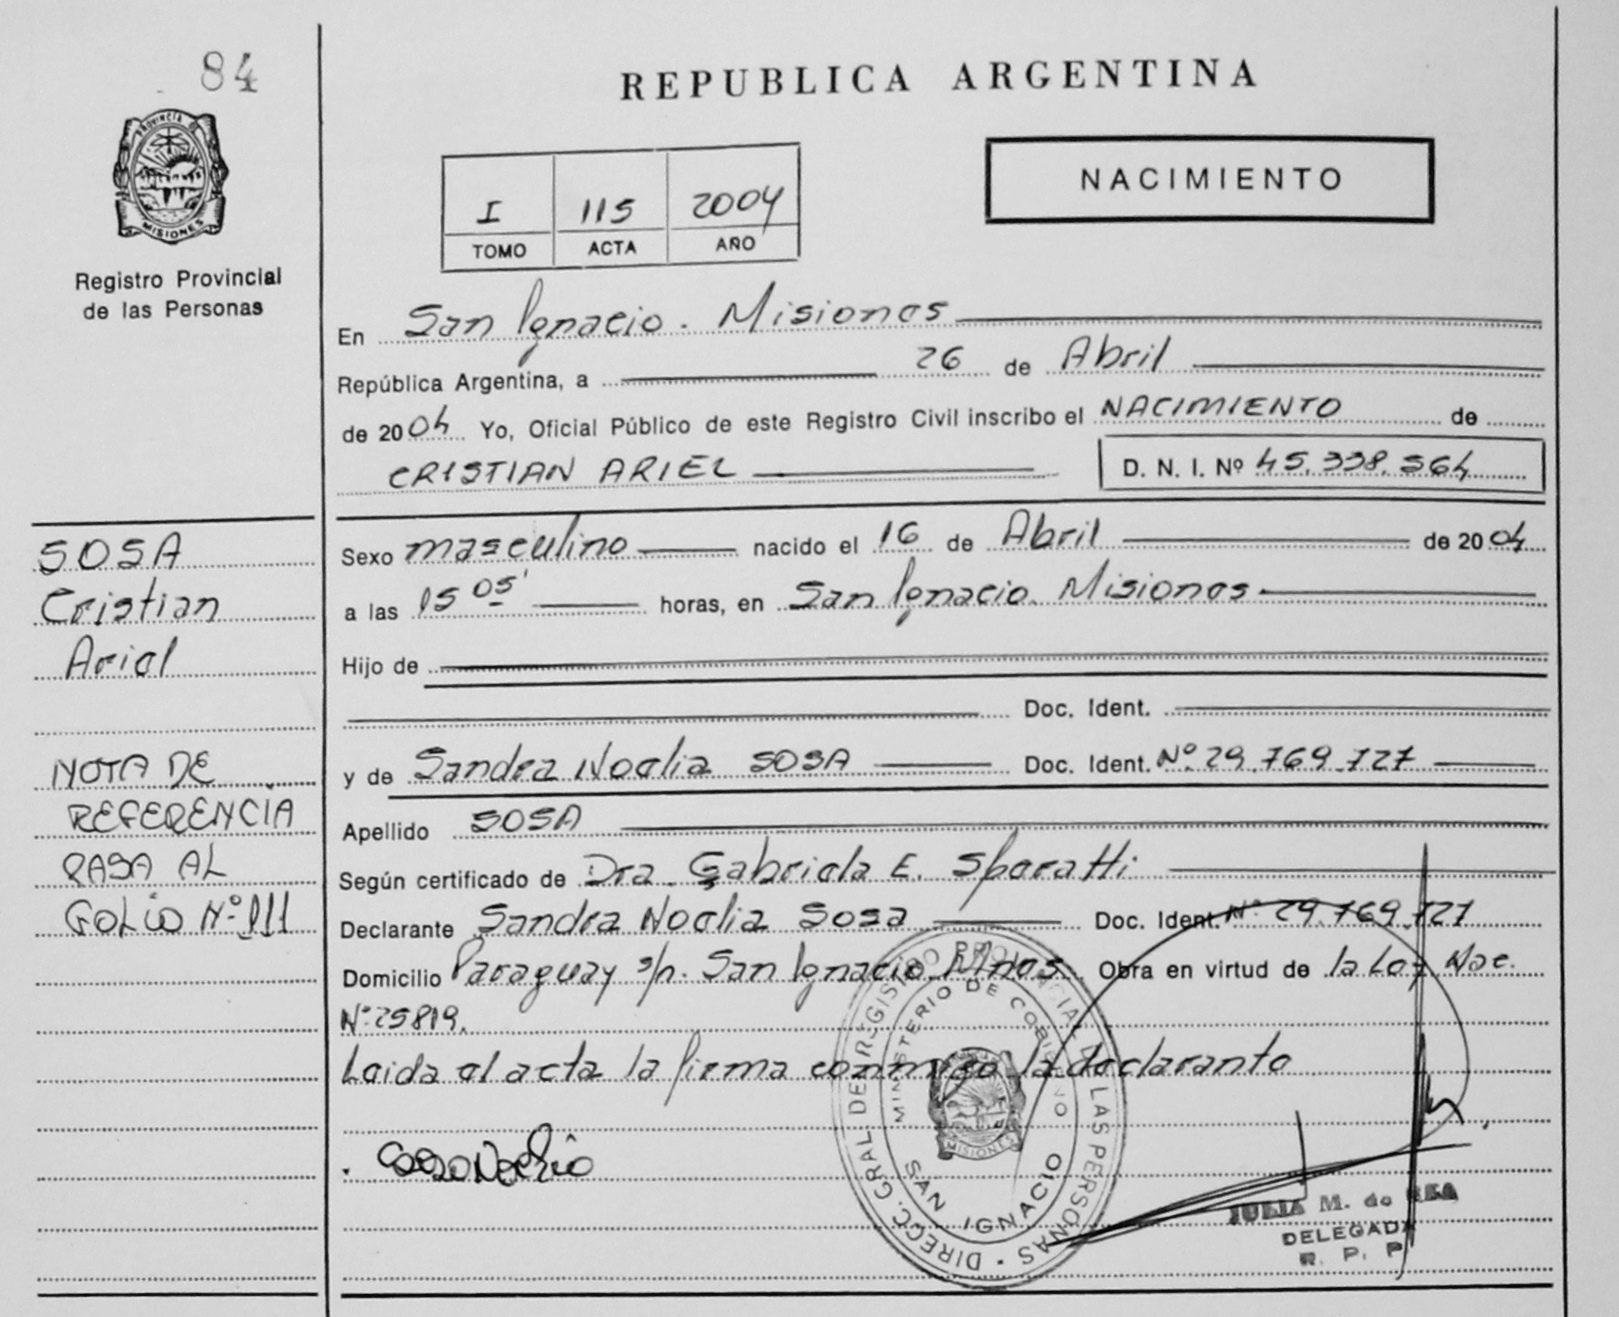 84
PROVINCIA DE
MISIONES
Registro Provincial
de las Personas
REPUBLICA ARGENTINA
NACIMIENTO
I 115 2004
TOMO ACTA AÑO
En San Ignacio. Misiones
República Argentina, a 26 de Abril
de 2004 Yo, Oficial Público de este Registro Civil inscribo el NACIMIENTO de
CRISTIAN ARIEL D. N. I. Nº 45.338.564
SOSA
Cristian
Ariel
NOTA DE
REFERENCIA
PASA AL
FOLIO Nº 111
Sexo masculino nacido el 16 de Abril de 2004
a las 15 05' horas, en San Ignacio. Misiones
Hijo de
Doc. Ident.
y de Sandra Noelia SOSA Doc. Ident. Nº 29.769.727
Apellido SOSA
Según certificado de Dra. Gabriela E. Sporatti
Declarante Sandra Noelia Sosa Doc. Ident. Nº 29.769.727
Domicilio Paraguay s/n. San Ignacio. Mnes. Obra en virtud de la Ley Nac.
Nº 25819.
Leida el acta la firma conmigo la declarante
Sosa Noelia
DIRECC. GRAL DE REGISTRO PROVINCIAL DE LAS PERSONAS
MINISTERIO DE GOBIERNO
MISIONES
SAN IGNACIO
JULIA M. de REA
DELEGADA
R. P. P.